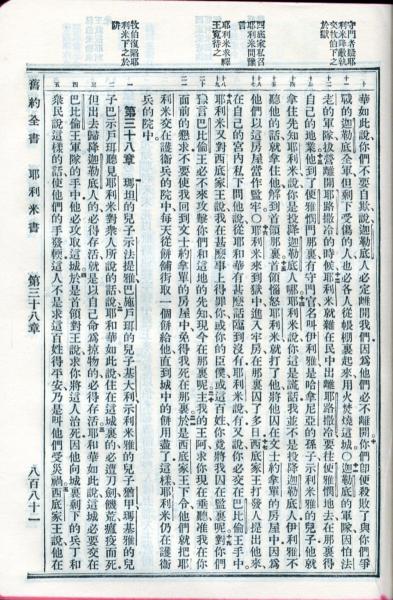 守門者疑耶
利米降敵執
交牧伯下之
於獄
西底家私召
耶利米問難
耶利米求釋
王寬待之
牧伯復陷耶
利米下之
阱
華如此說你們不要自欺說迦勒底人必定離開我們因爲他們必不離開你們卽便殺敗了與你們爭
戰的迦勒底全軍但剩下受傷的人也必各人從帳棚裏起來用火焚燒這城〇迦勒底的軍隊因怕法
老的軍隊拔營離開耶路撒冷的時候耶利米就雜在民中出離耶路撒冷要往便雅憫地去在那裏得
自己的地業他到了便雅憫門那裏有守門官名叫伊利雅是哈拿尼亞的孫子示利米雅的兒子他就
拿住先知耶利米說你是投降迦勒底人哪耶利米說你這是謊話我並不是投降迦勒底人伊利雅不
聽他的話就拿住他解到首領那裏首領惱怒耶利米就打了他將他囚在文士約拿單的房屋中因爲
他們以這房屋當作監牢〇耶利米來到獄中進入牢房在那裏囚了多日西底家王打發人提出他來
在自己的宮內私下問他說從耶和華有甚麼話臨到沒有耶利米說有又說你必交在巴比倫王手中
耶利米又對西底家王說我在甚麼事上得罪你或你的臣僕或這百姓你竟將我囚在監裏呢對你們
豫言巴比倫王必不來攻擊你們和這地的先知現今在那裏呢主我的王阿求你現在垂聽准我在你
面前的懇求不要使我回到文士約拿單的房屋中免得我死在那裏於是西底家王下令他們就把耶
利米交在護衞兵的院中每天從餅鋪街取一個餅給他直到城中的餅用盡了這樣耶利米仍在護衞
兵的院中
第三十八章 瑪坦的兒子示法提雅巴施戶珥的兒子基大利示利米雅的兒子猶甲瑪基雅的兒
子巴示戶珥聽見耶利米對衆人所說的話說耶和華如此說住在這城裏的必遭刀劍饑荒瘟疫而死
但出去歸降迦勒底人的必得存活就是以自己命爲掠物的必得存活耶和華如此說這城必要交在
巴比倫王軍隊的手中他必攻取這城於是首領對王說求你將這人治死因他向城裏剩下的兵丁和
衆民說這樣的話使他們的手發軟這人不是求這百姓得平安乃是叫他們受災禍西底家王說他在
舊約全書 耶利米書 第三十八章 八百八十一